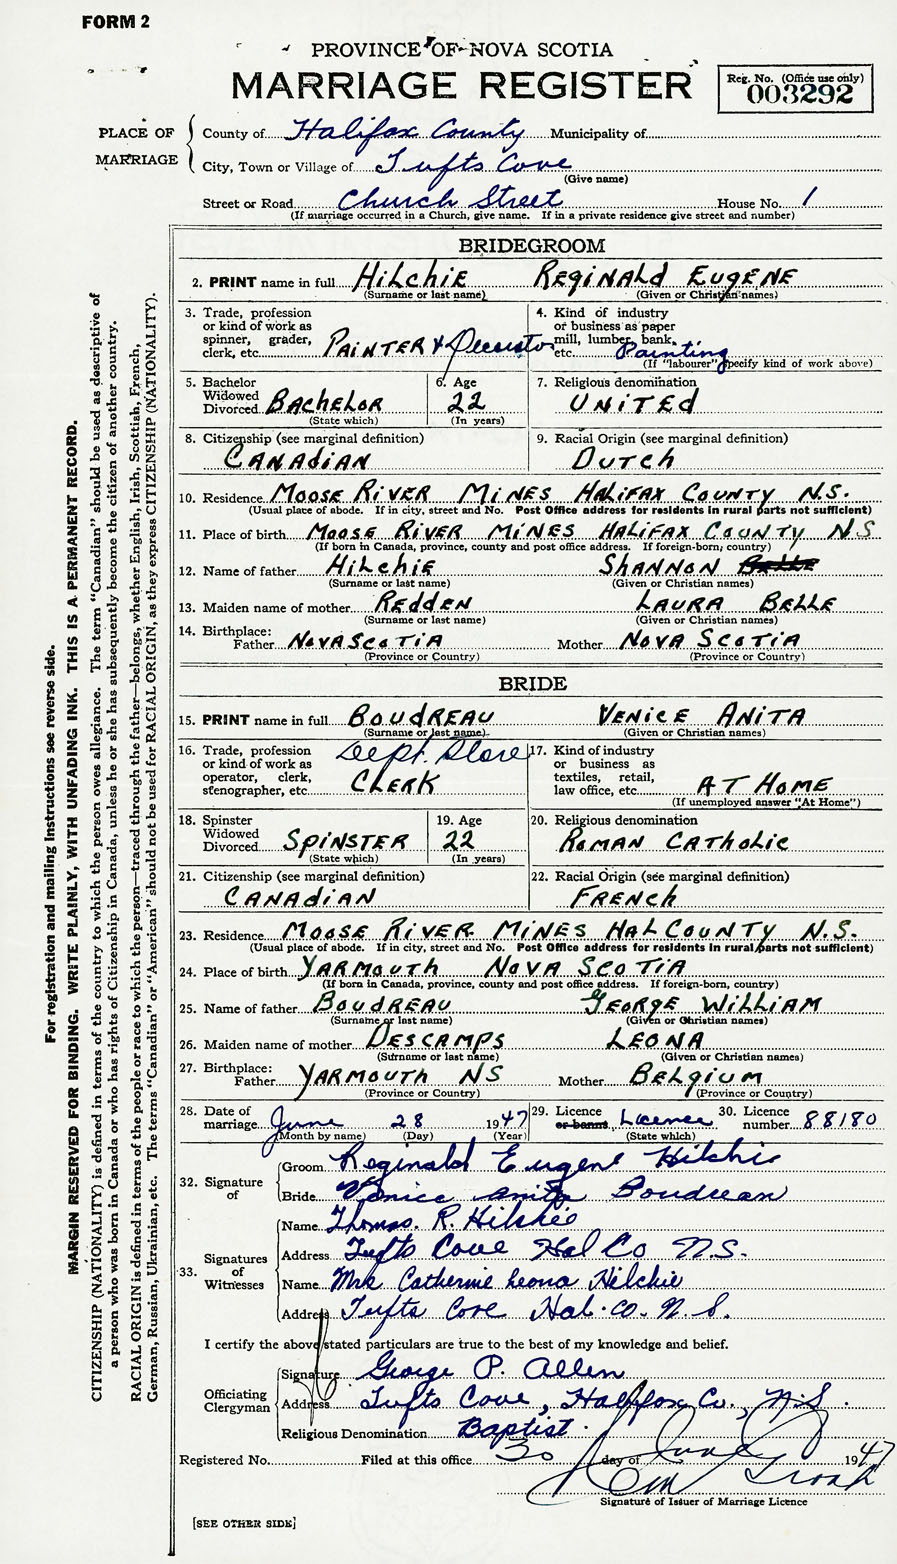 FORM 2
PROVINCE OF NOVA SCOTIA
MARRIAGE REGISTER
Reg. No. (Office use only)
003292
PLACE OF MARRIAGE
County of Halifax County Municipality of
City, Town or Village of Tufts Cove
(Give name)
Street or Road Church Street House No. 1
(If marriage occurred in a Church, give name. If in a private residence give street and number)
BRIDEGROOM
2. PRINT name in full Hilchie Reginald Eugene
(Surname or last name) (Given or Christian names)
3. Trade, profession or kind of work as spinner, grader, clerk, etc. Painter & Decorator
4. Kind of industry or business as paper mill, lumber, bank, etc. Painting
(If "labourer" specify kind of work above)
5. Bachelor Widowed Divorced Bachelor
(State which)
6. Age 22
(In years)
7. Religious denomination United
8. Citizenship (see marginal definition) Canadian
9. Racial Origin (see marginal definition) Dutch
10. Residence Moose River Mines Halifax County N.S.
(Usual place of abode. If in city, street and No. Post Office address for residents in rural parts not sufficient)
11. Place of birth Moose River Mines Halifax County N S
(If born in Canada, province, county and post office address. If foreign-born, country)
12. Name of father Hilchie Shannon Belle
(Surname or last name) (Given or Christian names)
13. Maiden name of mother Redden Laura Belle
(Surname or last name) (Given or Christian names)
14. Birthplace: Father Nova Scotia Mother Nova Scotia
(Province or Country) (Province or Country)
BRIDE
15. PRINT name in full Boudreau Venice Anita
(Surname or last name) (Given or Christian names)
16. Trade, profession or kind of work as operator, clerk, stenographer, etc. Dept. Store Clerk
17. Kind of industry or business as textiles, retail, law office, etc. At Home
(If unemployed answer "At Home")
18. Spinster Widowed Divorced Spinster
(State which)
19. Age 22
(In years)
20. Religious denomination Roman Catholic
21. Citizenship (see marginal definition) Canadian
22. Racial Origin (see marginal definition) French
23. Residence Moose River Mines Hal County N.S.
(Usual place of abode. If in city, street and No. Post Office address for residents in rural parts not sufficient)
24. Place of birth Yarmouth Nova Scotia
(If born in Canada, province, county and post office address. If foreign-born, country)
25. Name of father Boudreau George William
(Surname or last name) (Given or Christian names)
26. Maiden name of mother Descamps Leona
(Surname or last name) (Given or Christian names)
27. Birthplace: Father Yarmouth NS Mother Belgium
(Province or Country) (Province or Country)
28. Date of marriage June 28 1947
(Month by name) (Day) (Year)
29. Licence or banns Licence
(State which)
30. Licence number 88180
32. Signature of
Groom Reginald Eugene Hilchie
Bride Venice Anita Boudreau
33. Signatures of Witnesses
Name Thomas. R. Hilchie
Address Tufts Cove Hal Co N.S.
Name Mrs Catherine Leona Hilchie
Address Tufts Cove Hal. Co. N. S.
I certify the above stated particulars are true to the best of my knowledge and belief.
Officiating Clergyman
Signature George P. Allen
Address Tufts Cove, Halifax Co., N.S.
Religious Denomination Baptist.
Registered No. Filed at this office 30 day of June 1947
Signature of Issuer of Marriage Licence
[SEE OTHER SIDE]
For registration and mailing instructions see reverse side.
MARGIN RESERVED FOR BINDING. WRITE PLAINLY, WITH UNFADING INK. THIS IS A PERMANENT RECORD.
CITIZENSHIP (NATIONALITY) is defined in terms of the country to which the person owes allegiance. The term "Canadian" should be used as descriptive of
a person who was born in Canada or who has rights of Citizenship in Canada, unless he or she has subsequently become the citizen of another country.
RACIAL ORIGIN is defined in terms of the people or race to which the person—traced through the father—belongs, whether English, Irish, Scottish, French,
German, Russian, Ukrainian, etc. The terms "Canadian" or "American" should not be used for RACIAL ORIGIN, as they express CITIZENSHIP (NATIONALITY).